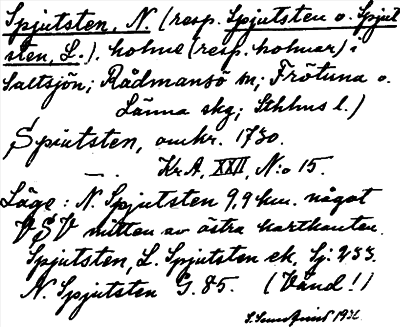 Spjutsten, N. (resp. Spjutsten o. Spjut
sten, L.). holme (resp. holmar) i
Saltsjön; Rådmansö sn; Frötuna o.
Länna skg; Sthlms l.)
Spiutsten, omkr. 1730.
KrA, XXII, N:o 15.
Läge: N. Spjutsten 9,9 km. något
VSV mitten av östra kartkanten.
Spjutsten, L. Spjutsten ek. Sj: 233.
N. Spjutsten G. 85. (Vänd!)
1931.